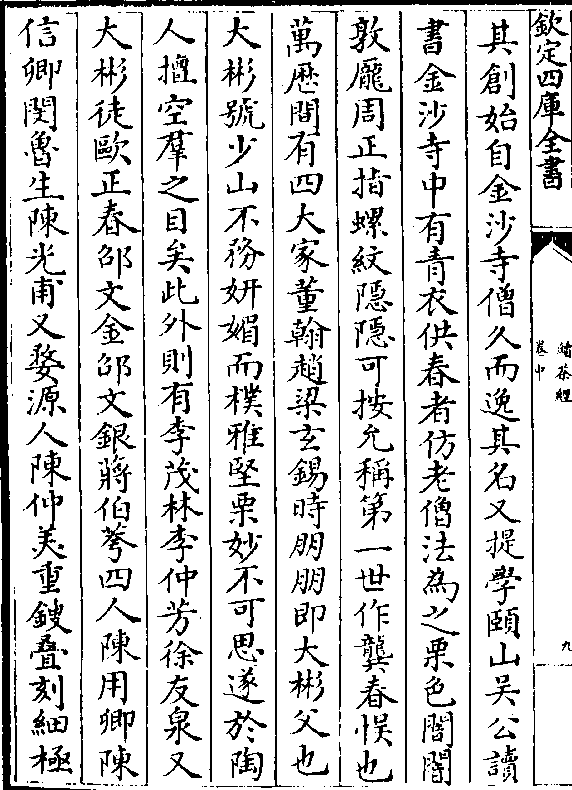 欽定四庫全書
續茶經
卷中
九
其創始自金沙寺僧久而逸其名又提學頤山吳公讀
書金沙寺中有青衣供春者仿老僧法為之栗色闇闇
敦龎周正指螺紋隠隠可按允稱第一世作龔春悮也
萬厯間有四大家董翰趙梁玄錫時朋朋即大彬父也
大彬號少山不務妍媚而樸雅堅栗妙不可思遂於陶
人擅空羣之目矣此外則有李茂林李仲芳徐友泉又
大彬徒歐正春邵文金邵文銀蔣伯荂四人陳用卿陳
信卿閔魯生陳光甫又婺源人陳仲美重鎪疊刻細極